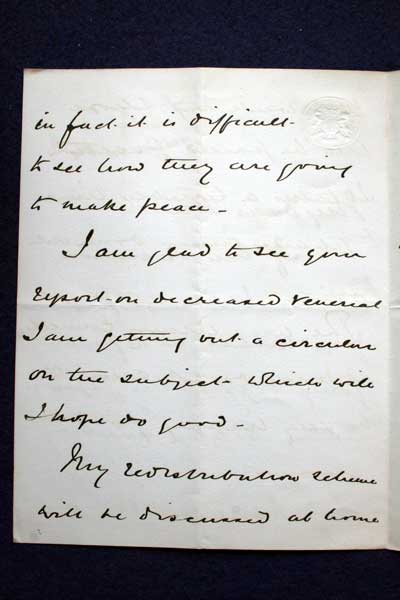 in fact it is difficult
to see how they are going
to make peace -
I am glad to see your
report on decreased venereal
I am getting out a circular
on the subject which will
I hope do good -
My redistribution scheme
will be discussed at home